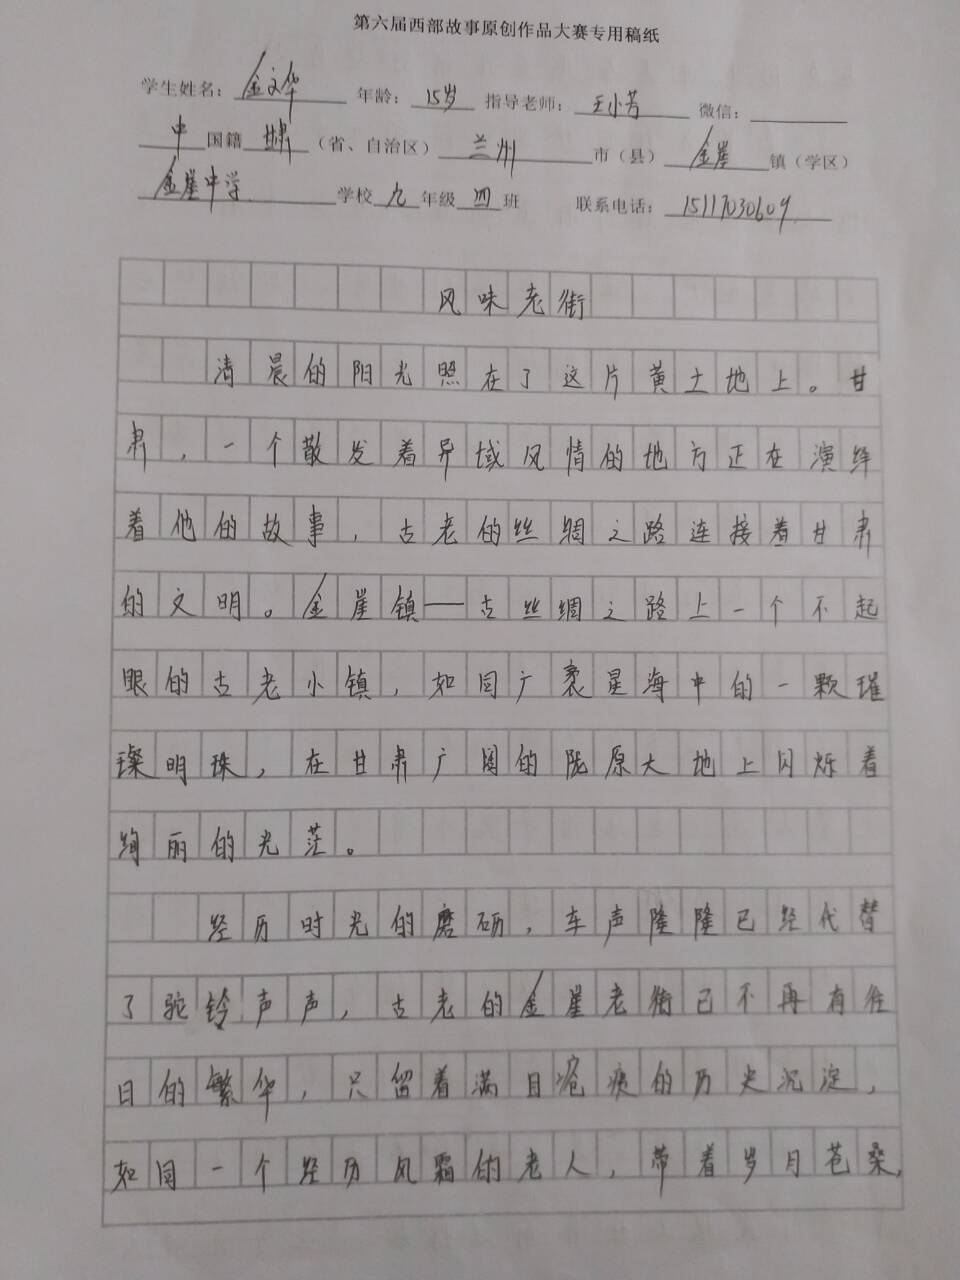 第六届西部故事原创作品大赛专用稿纸
学生姓名：金文华 年龄：15岁 指导老师：王小芳 微信：
中国籍 甘肃（省、自治区）兰州市（县）金崖镇（学区）
金崖中学学校九年级四班 联系电话：15117030609
风味老街
清晨的阳光照在了这片黄土地上。甘
肃，一个散发着异域风情的地方正在演绎
着他的故事，古老的丝绸之路连接着甘肃
的文明。金崖镇——古丝绸之路上一个不起
眼的古老小镇，如同广袤星海中的一颗璀
璨明珠，在甘肃广阔的陇原大地上闪烁着
绚丽的光茫。
经历时光的磨砺，车声隆隆已经代替
了驼铃声声，古老的金崖老街已不再有往
日的繁华，只留着满目疮痍的历史沉淀，
如同一个经历风霜的老人，带着岁月苍桑，